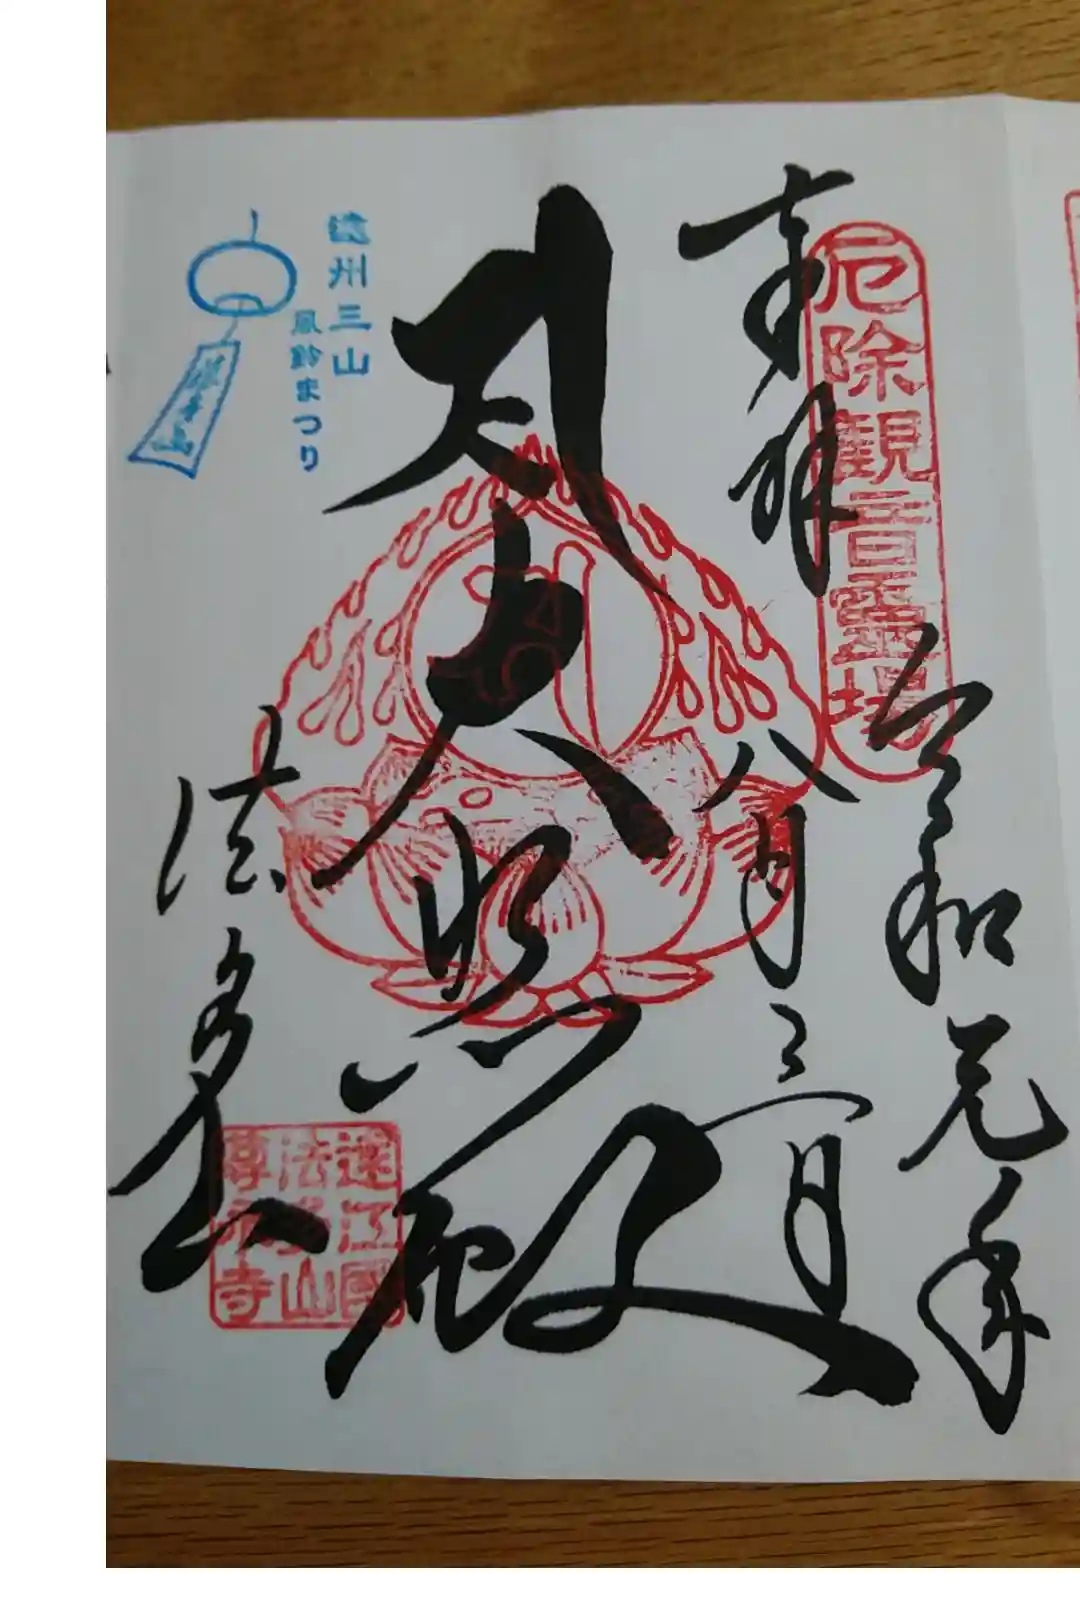 奉拝
厄除観音霊場
令和元年
八月三日
大悲殿
法多山
遠江國
法多山
尊永寺
遠州三山
風鈴まつり